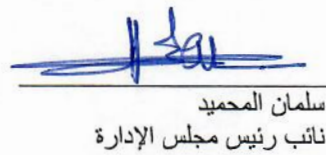 سلمان المحميد
نائب رئيس مجلس الإدارة